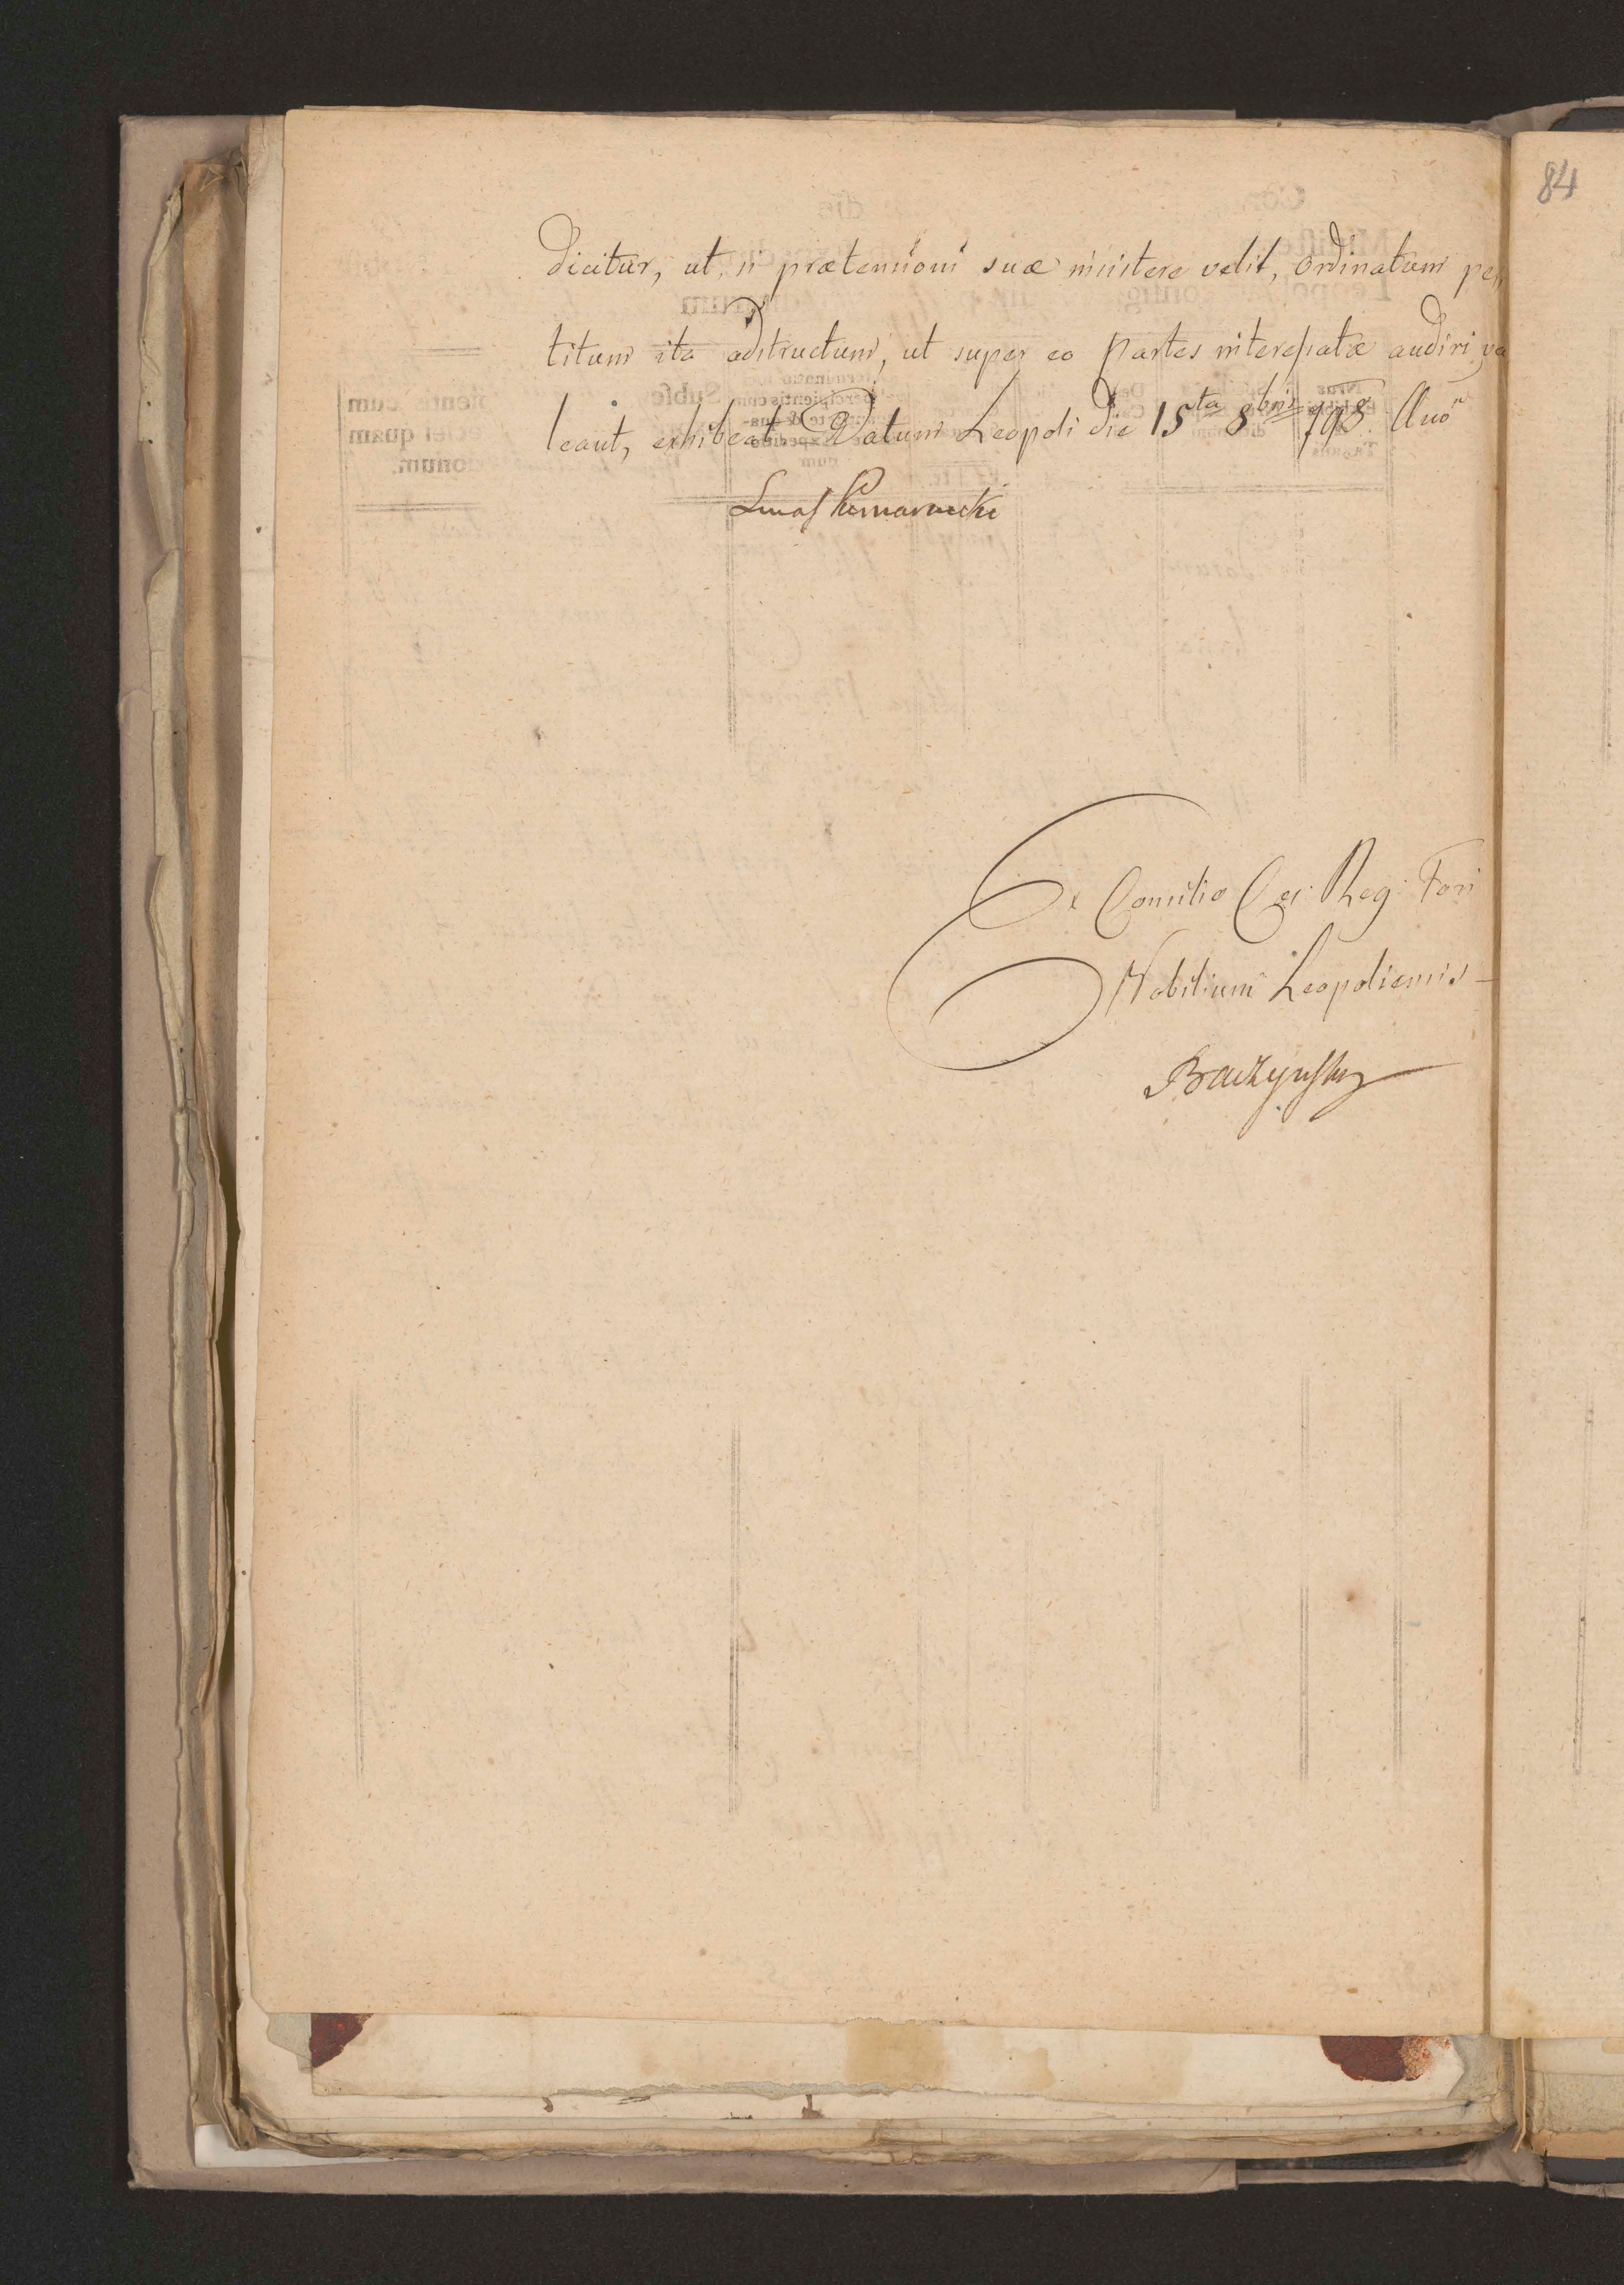 84
dicitur, ut, si prætensioni suæ insistere velit, Ordinatum pe„
titum ita adstructum, ut super eo Partes interessatæ audiri va
leant, exhibeat. Datum Leopoli die 15ta 8bris 798. Ano
Ex Consilio Cæs: Reg: Fori
Nobilium Leopoliensis